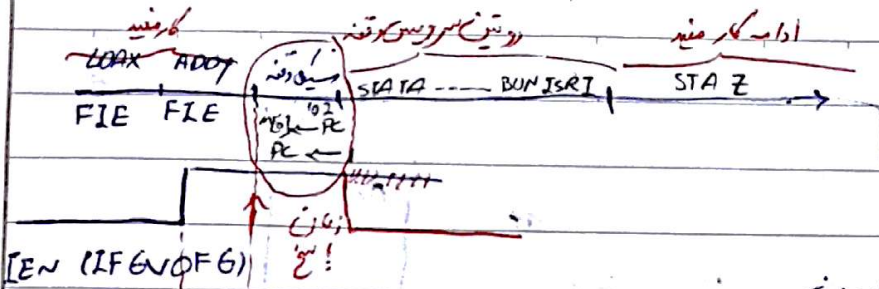 کار مفید روتین سرویس وقفه ادامه کار مفید
LDAX ADDY سیکل وقفه STATA ----- BUN ISRI STA Z
FIE FIE
PC ←
زمان
پاسخ!
IEN (IFGVOFG)